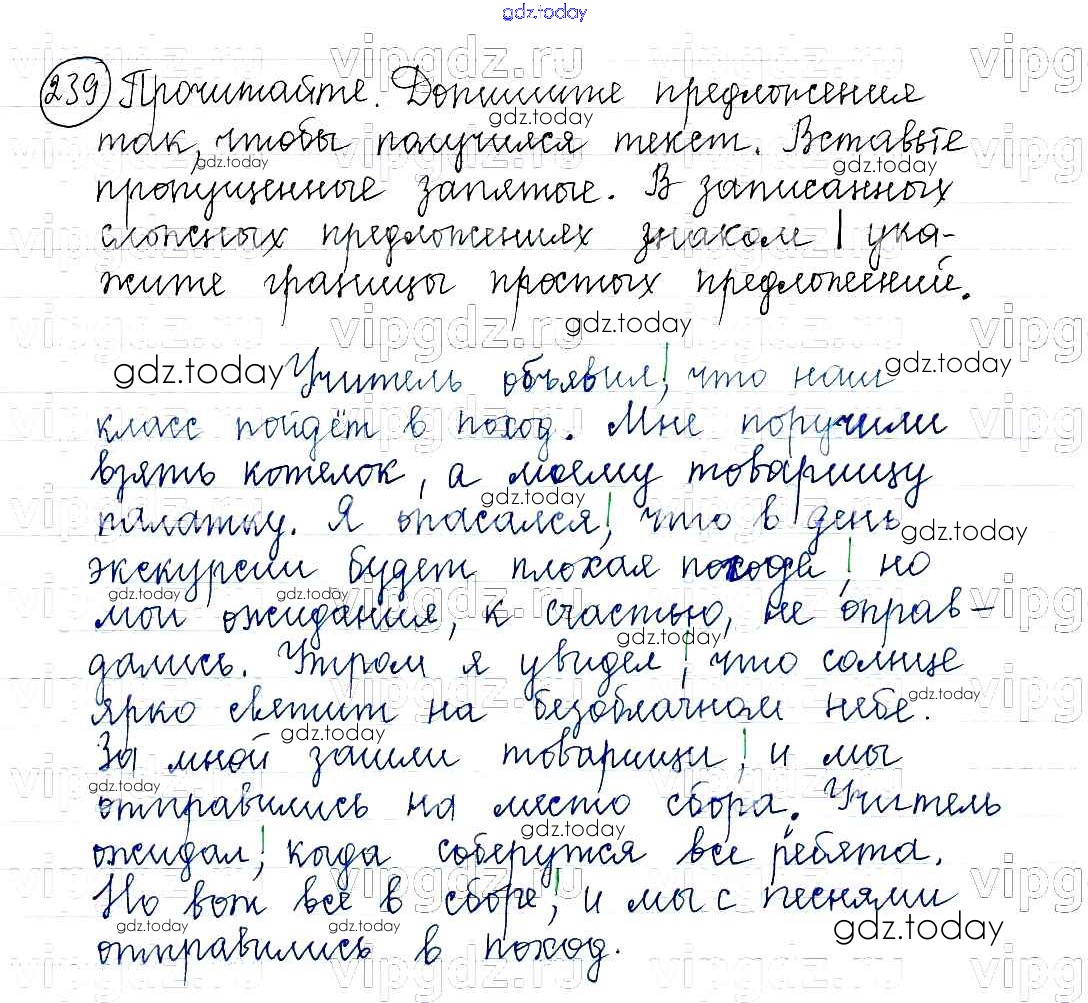 gdz.today
239 Прочитайте. Допишите предложения
так, чтобы получился текст. Вставьте
пропущенные запятые. В записанных
сложных предложениях знаком | ука-
жите границы простых предложений.
Учитель объявил,| что наш
класс пойдёт в поход. Мне поручили
взять котелок, а моему товарищу
палатку. Я опасался,| что в день
экскурсии будет плохая погода,| но
мои ожидания, к счастью, не оправ-
дались. Утром я увидел,| что солнце
ярко светит на безоблачном небе.
За мной зашли товарищи,| и мы
отправились на место сбора. Учитель
ожидал,| когда соберутся все ребята.
Но вот все в сборе,| и мы с песнями
отправились в поход.